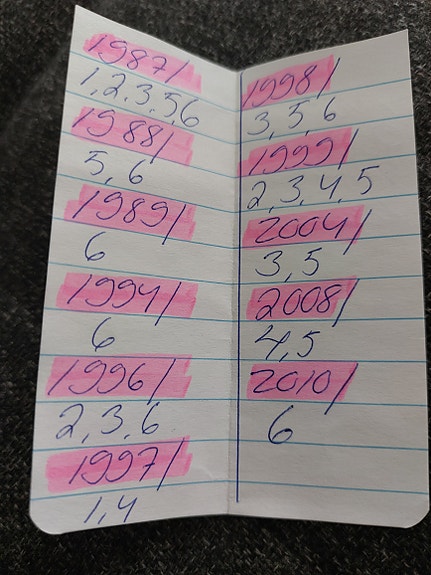 1987/
1,2,3,5,6
1988/
5,6
1989/
6
1994/
6
1996/
2,3,6
1997/
1,4
1998/
3,5,6
1999/
2,3,4,5
2004/
3,5
2008/
4,5
2010/
6